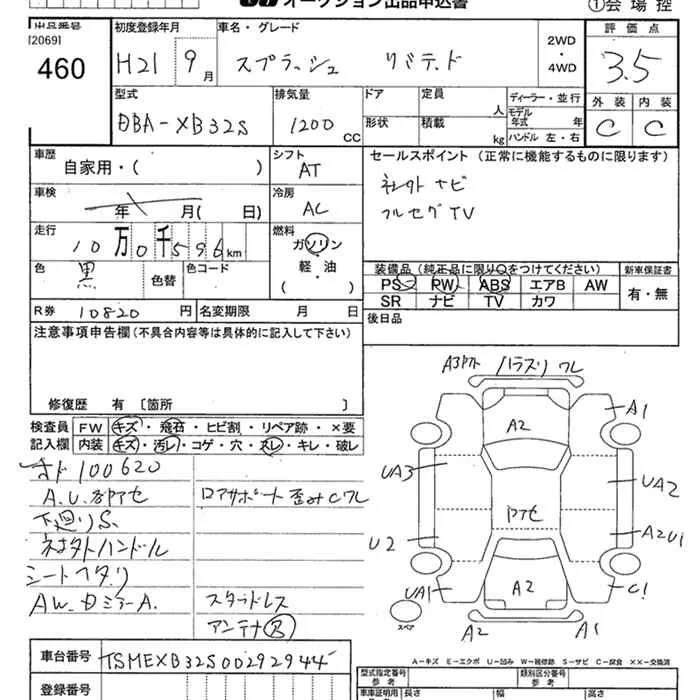 オークション出品申込書 ①会場控
出品番号 初度登録年月 車名・グレード 2WD・4WD 評価点
[2069]
460 H21 9月 スプラッシュ リミテッド 3.5
型式 排気量 ドア 定員 人 ディーラー・並行 外装 内装
DBA-XB32S 1200 CC 形状 積載 kg モデル年式 年 ハンドル 左・右 C C
車歴 自家用・( ) シフト AT セールスポイント(正常に機能するものに限ります)
車検 年 月( 日) 冷房 AC 社外ナビ
フルセグTV
走行 10万0千596km 燃料 ガソリン・軽・油( )
色 黒 色替 色コード 装備品(純正品に限り○をつけてください) 新車保証書
PS PW ABS エアB AW 有・無
SR ナビ TV カワ
R券 10820円 名変期限 月 日 後日品
注意事項申告欄(不具合内容等は具体的に記入して下さい)
修復歴 有 〔箇所 〕
検査員記入欄 FW キズ・飛石・ヒビ割・リペア跡・×要
内装 キズ・汚レ・コゲ・穴・スレ・キレ・破レ
オド100620
A.U.各所アセ ロアサポート歪みCワレ
下廻りS
ネオタトハンドル
シートヘタリ
AW.ドミラーA. スタッドレス
アンテナ
A1
A2
UA3
UA2
U2
A2U1
UA1
C1
A2
スペア
A2
A1
A-キズ E-エクボ U-凹み W-補修跡 S-サビ C-腐食 ××-交換済
車台番号 TSMEXB32S00292944
型式指定番号 参考 類別区分番号 参考
登録番号 車体証明 参考 長さ 幅 高さ